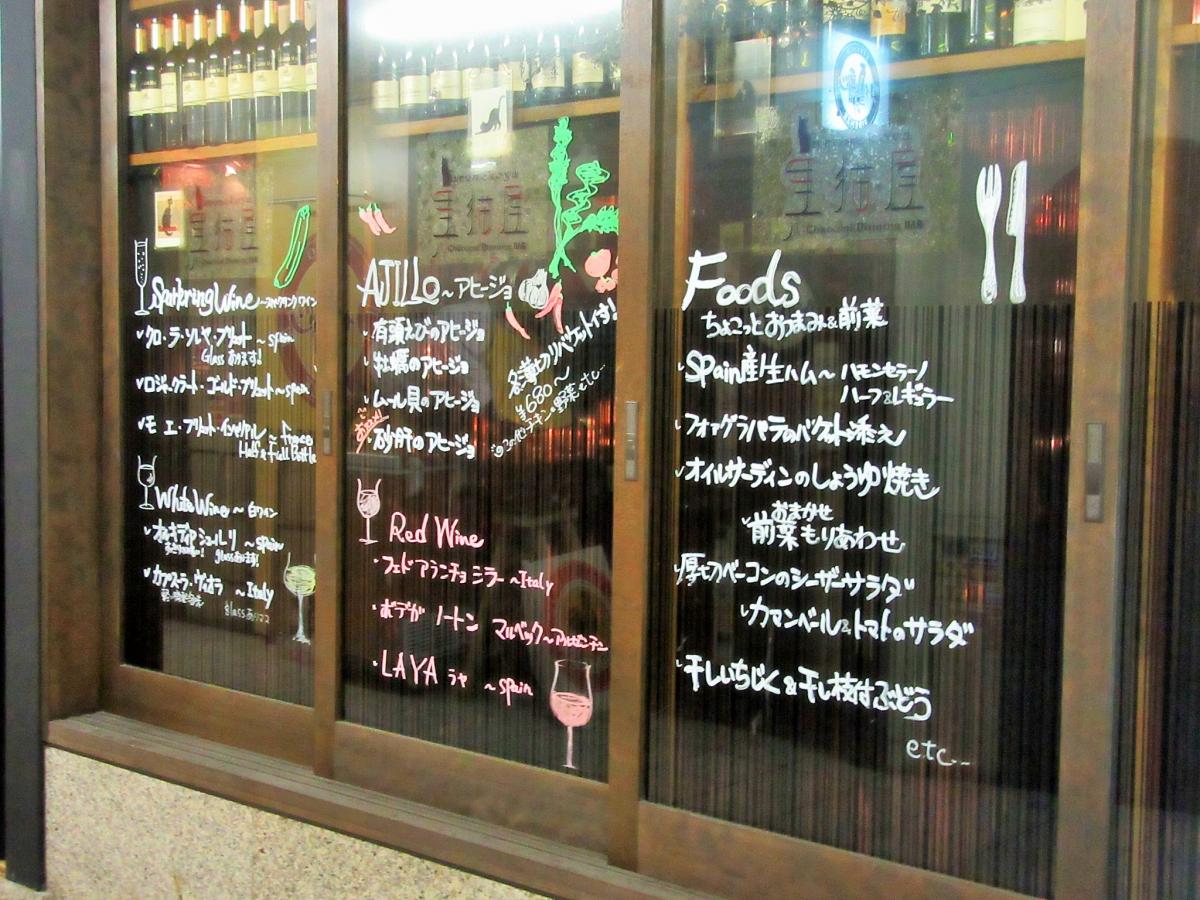 Sparkring Wine ~スパークリングワイン
クロ・ラ・ソレヤ・ブリュット ~ spain
Glass あります!
ロジャーグラート・ゴールド・ブリュット~ spain
モエ・ブリュット・インペリアル ~ france
Half & Full Bottle
White Wine ~ 白ワイン
~ spain
glassあります!
カプスーラ・ヴィオラ ~ Italy
glassあります
AJILLO ~ アヒージョ
有頭えびのアヒージョ
牡蠣のアヒージョ
ムール貝のアヒージョ
砂肝のアヒージョ
各種切りバゲット付!
¥680~
チキン・野菜 etc...
Red Wine
フェド アランチョ ミラー ~Italy
ボデガ ノートン マルベック~アルゼンチン
LAYA ラヤ ~ spain
宝猫屋
Foods
ちょこっとおつまみ&前菜
Spain産生ハム~ ハモンセラーノ
ハーフ&レギュラー
フォアグラパテのバケット添え
オイルサーディンのしょうゆ焼き
おまかせ
前菜もりあわせ
厚切ベーコンのシーザーサラダ
カマンベール&トマトのサラダ
干しいちじく&干し枝付ぶどう
etc...